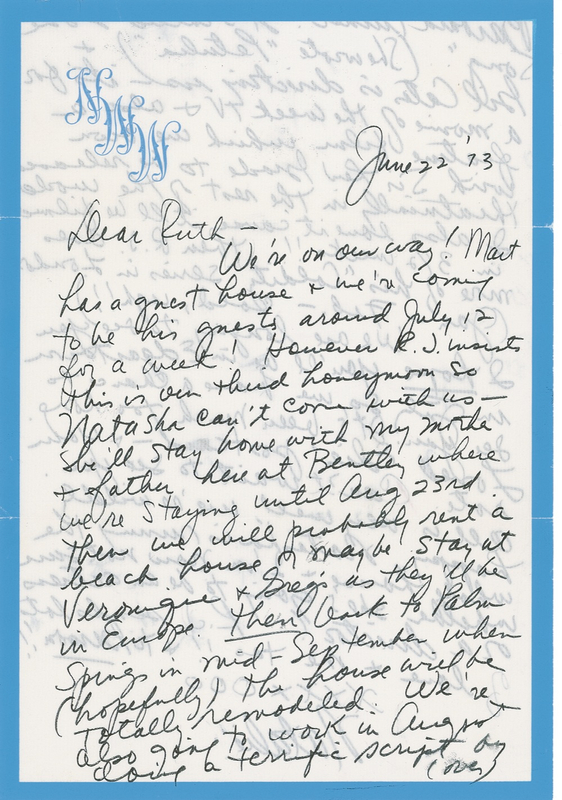 NWW
June 22 '73
Dear Ruth —
We're on our way! Mart
has a guest house & we're coming
to be his guests around July 12
for a week! However R.J. insists
this is our third honeymoon so
Natasha can't come with us —
she'll stay home with my mother
& father here at Bentley where
we're staying until Aug 23rd.
Then we will probably rent a
beach house or maybe stay at
Veronique & Greg's as they'll be
in Europe. Then back to Palm
Springs in mid-September when
(hopefully) the house will be
totally remodeled. We're
also going to work in August
doing a terrific script by
(over)